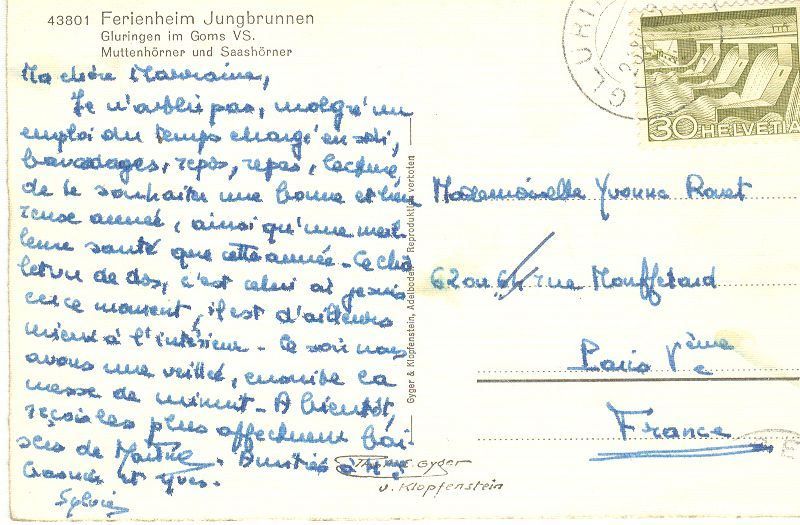 43801 Ferienheim Jungbrunnen
Gluringen im Goms VS.
Muttenhörner und Saashörner
Ma chère Marraine,
Je n'oublie pas, malgré un
emploi du temps chargé en ski,
bavardages, repos, repas, lecture,
de te souhaiter une bonne et heu
reuse année, ainsi qu'une meil-
leure santé que cette année - Ce châ
let vu de dos, c'est celui où je suis
en ce moment, il est d'ailleurs
mieux à l'intérieur - Ce soir nous
avons une veillée, ensuite la
messe de minuit - A bientôt,
reçois les plus affectueux bai-
sers de - Amitiés à
et Yves.
Sylvie
Gyger & Klopfenstein, Adelboden - Reproduktion verboten
GLURI
30 HELVETIA
Mademoiselle Yvonne Rouat
62 ou 64 rue Mouffetard
Paris Vème
France
E. Gyger
u. Klopfenstein